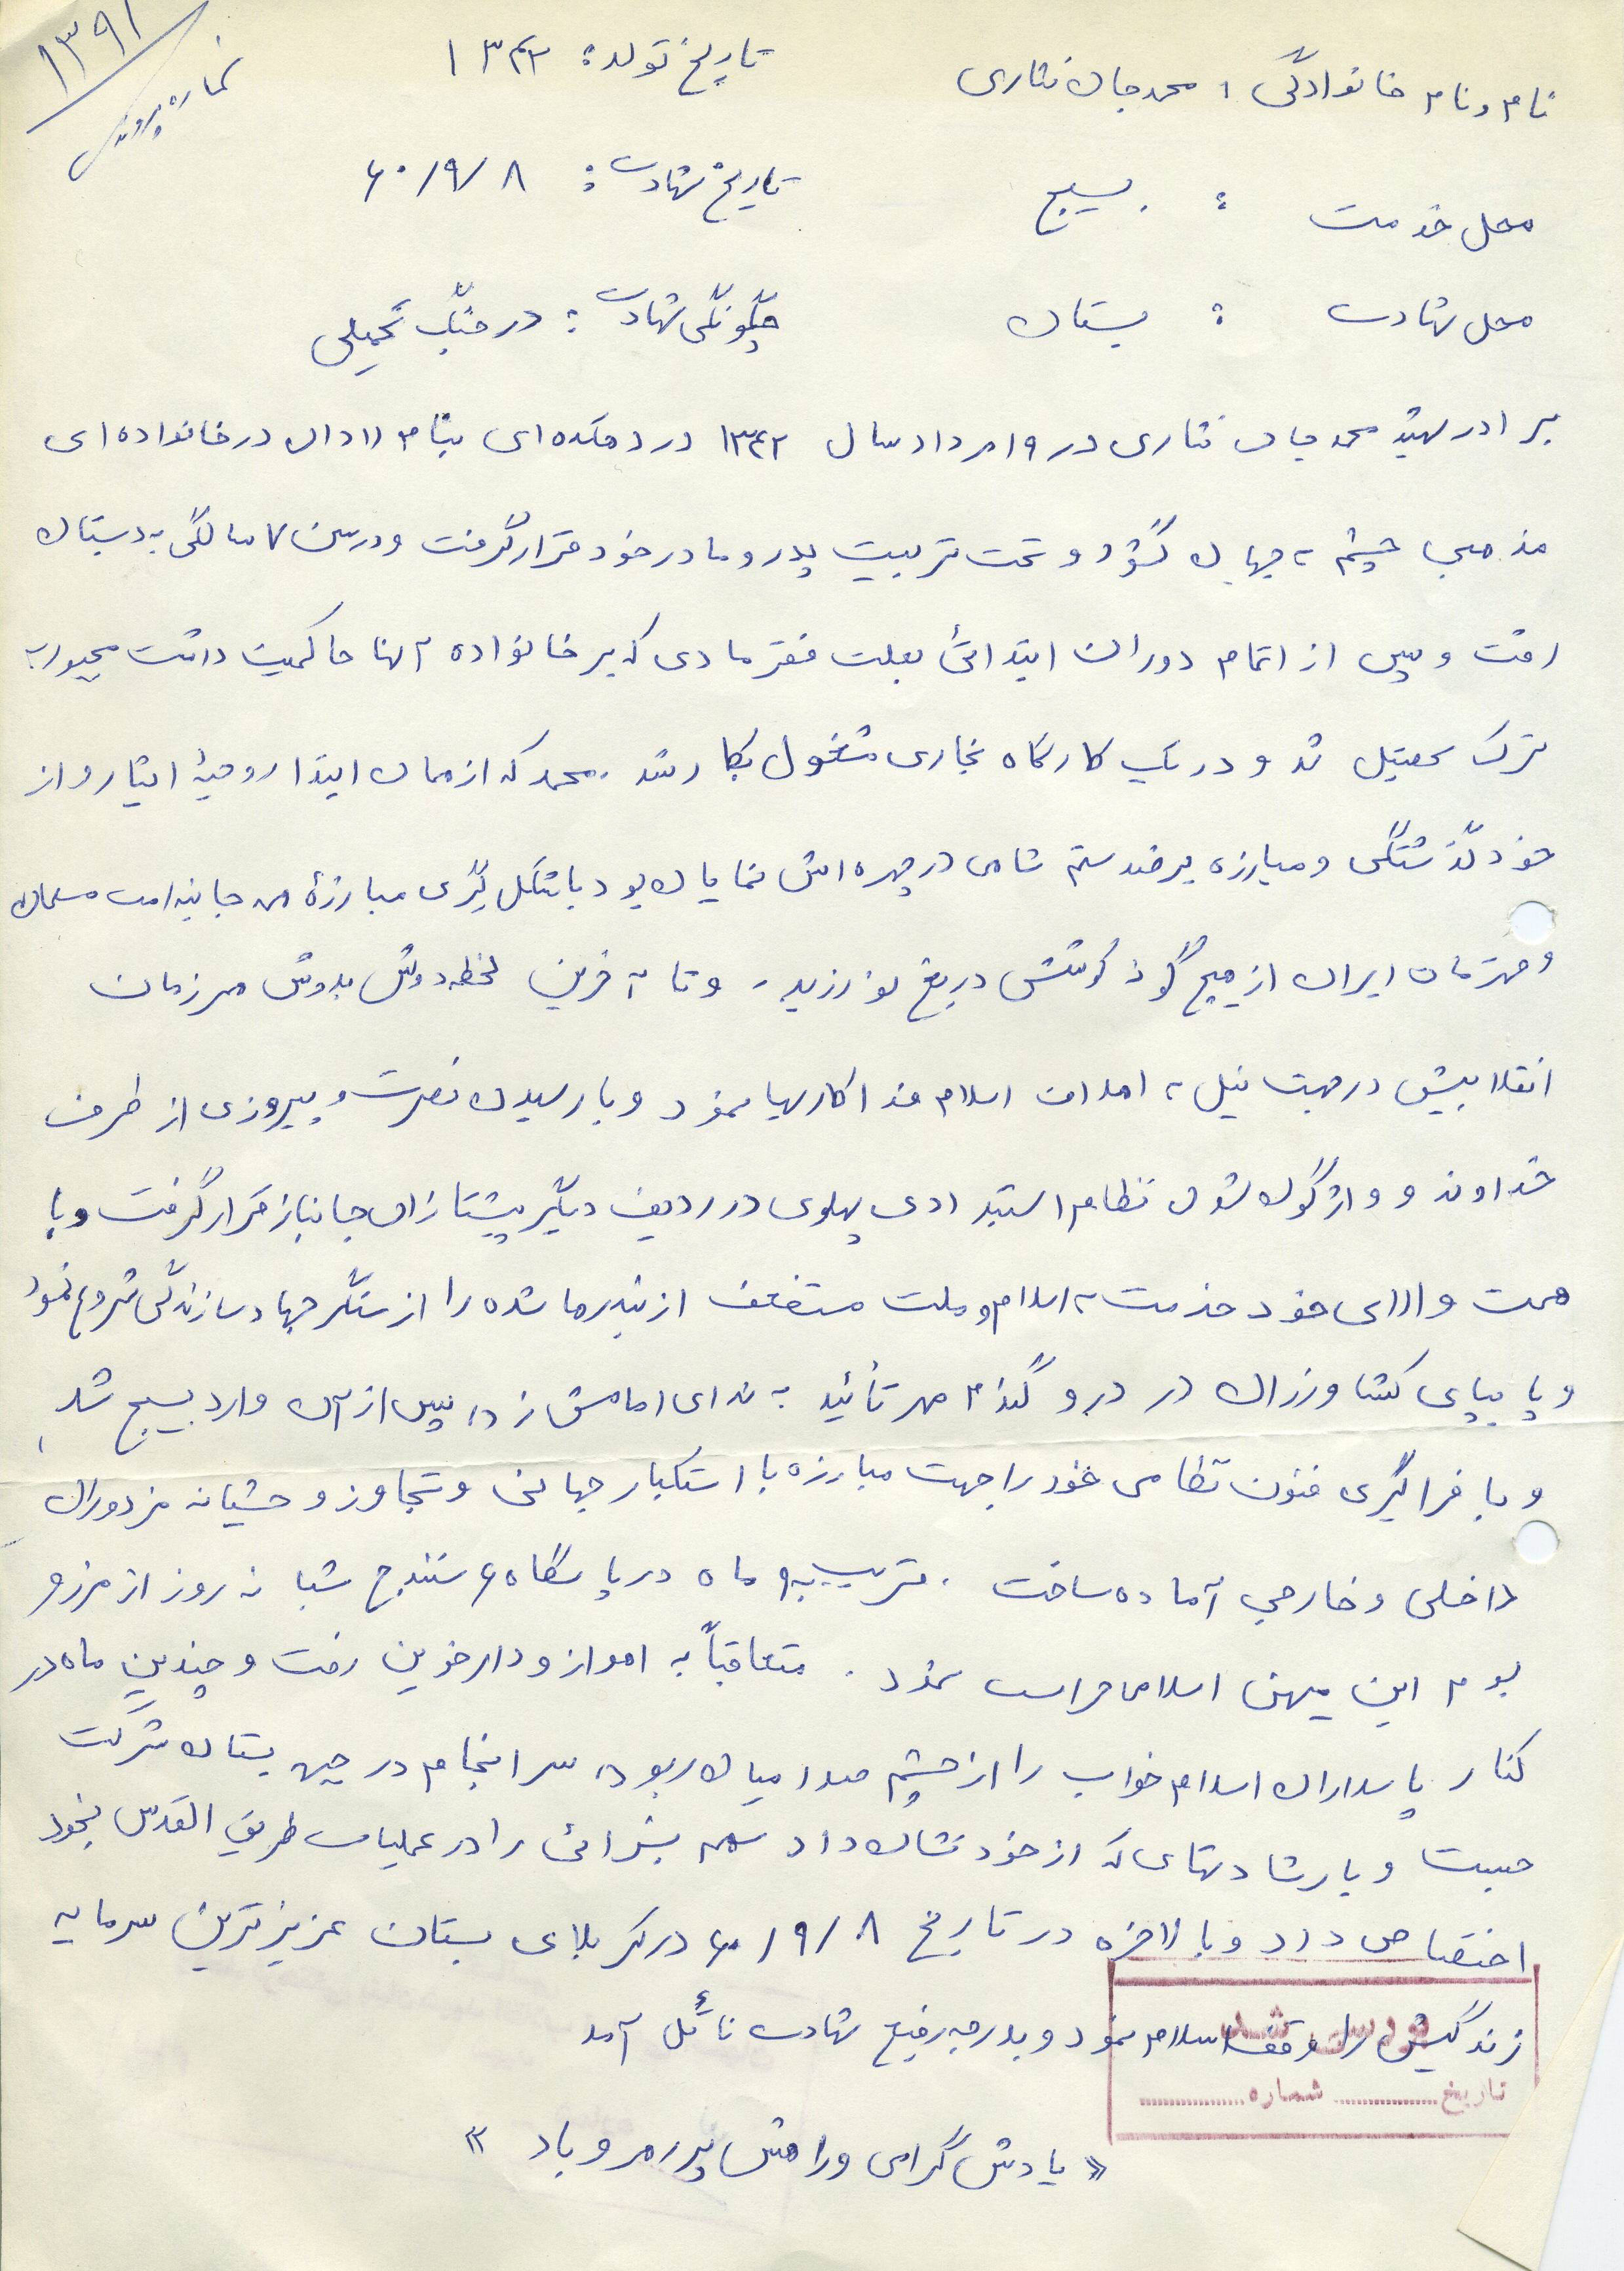 ۱۳۹۱
شماره پرونده
نام و نام خانوادگی : محمد جان نثاری
تاریخ تولد : ۱۳۴۲
محل خدمت : بسیج
تاریخ شهادت : ۶۰/۹/۸
محل شهادت : بستان
چگونگی شهادت : در جنگ تحمیلی
برادر شهید محمد جان نثاری در ۱۹ مرداد سال ۱۳۴۲ در دهکده‌ای بنام دادان در خانواده ای
مذهبی چشم به جهان گشود و تحت تربیت پدر و مادر خود قرار گرفت و در سن ۷ سالگی به دبستان
رفت و پس از اتمام دوران ابتدائی بعلت فقر مادی که بر خانواده آنها حاکمیت داشت مجبور به
ترک تحصیل شد و در یک کارگاه نجاری مشغول بکار شد . محمد که از همان ابتدا روحیهٔ ایثار و از
خود گذشتگی و مبارزه بر ضد ستم شاهی در چهره اش نمایان بود با شکل گیری مبارزهٔ همه جانبه امت مسلمان
و قهرمان ایران از هیچ گونه کوشش دریغ نورزید ، و تا آخرین لحظه دوش بدوش همرزمان
انقلابیش در جهت نیل به اهداف اسلام فداکاریها نمود و با رسیدن نصرت و پیروزی از طرف
خداوند و واژگون شدن نظام استبدادی پهلوی در ردیف دیگر پیشتازان جانباز قرار گرفت و با
همت والای خود خدمت به اسلام و ملت مستضعف از بند رها شده را از سنگر جهاد سازندگی شروع نمود
و پا بپای کشاورزان در درو گندم مهر تأئید به ندای امامش زد، پس از آن وارد بسیج شد
و با فراگیری فنون نظامی خود را جهت مبارزه با استکبار جهانی و تجاوز وحشیانه مزدوران
داخلی و خارجی آماده ساخت . قریب به ۹ ماه در پاسگاه ۶ سنندج شبانه روز از مرز و
بوم این میهن اسلامی حراست نمود . متعاقباً به اهواز و دارخوین رفت و چندین ماه در
کنار پاسداران اسلام خواب را از چشم صدامیان ربود، سرانجام در جبهه بستان شرکت
جست و با رشادتهای که از خود نشان داد سهم بسزائی را در عملیات طریق القدس بخود
اختصاص داد و بالاخره در تاریخ ۶۰/۹/۸ در کربلای بستان عزیزترین سرمایه
زندگیش را وقف اسلام نمود و بدرجه رفیع شهادت نائل آمد
تاریخ .............. شماره ..............
« یادش گرامی و راهش پر رهرو باد »